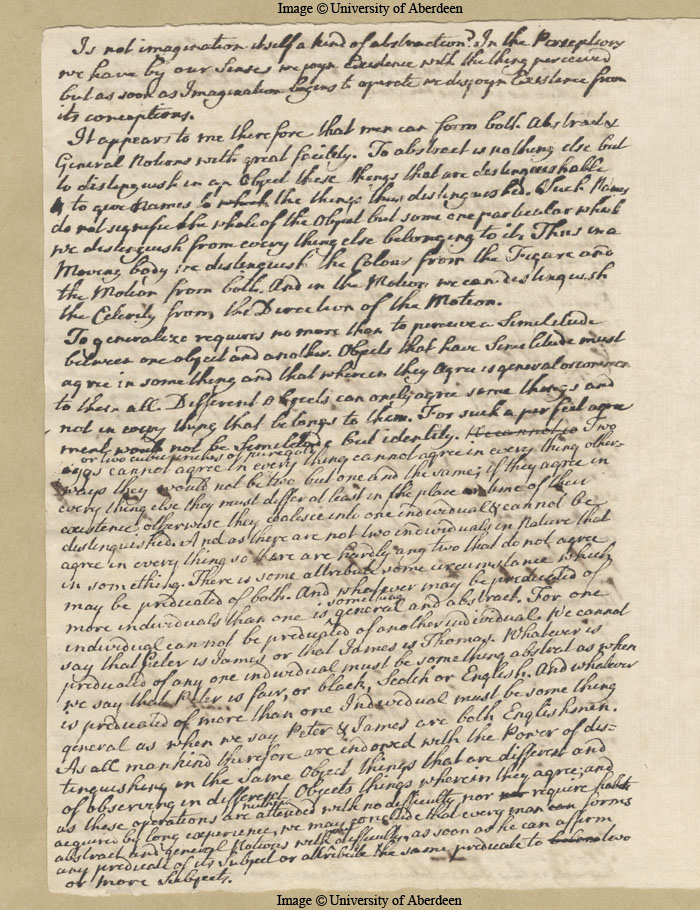 Image © University of Aberdeen
Is not imagination itself a kind of abstraction? In the Perceptions
we have by our Senses we joyn Existence with the thing perceived
but as soon as Imagination begins to operate we disjoyn Existence from
its conceptions.
It appears to me therefore that men can form both Abstract &
General Notions with great facility. To abstract is nothing else but
to distinguish in an Object these things that are distinguishable
& to give Names to the things thus distinguished. Such Names
do not signifie the whole of the Object but some one particular which
we distinguish from every thing else belonging to it. Thus in a
Moving body we distinguish the Colour from the Figure and
the Motion from both. And in the Motion we can distinguish
the Celerity from the Direction of the Motion.
To generalize requires no more than to perceive a Similitude
between one object and another. Objects that have Similitude must
agree in something and that wherein they Agree is general or common
to them all. Different Objects can onely agree some things and
not in every thing that belongs to them. For such a perfect agree
ment would not be Similitude but identity. We cannot Two
or two cubic inches of pure gold
eggs cannot agree in every thing cannot agree in every thing other-
ways they would not be two but one and the same; if they agree in
every thing else they must differ at least in the place or time of their
existence, otherwise they coalesce into one individual & cannot be
distinguished. And as there are not two individuals in Nature that
agree in every thing so there are hardly any two that do not agree
in something. There is some attribute some circumstance which
may be predicated of both. And whatever may be predicated of
more individuals than one is something general and abstract. For one
individual cannot be predicated of another individual. We cannot
say that Peter is James or that James is Thomas. Whatever is
predicated of any one individual must be something abstract as when
we say that Peter is fair, or black, Scotch or English. And whatever
is predicated of more than one Individual must be some thing
general as when we say Peter & James are both Englishmen.
As all mankind therefore are indowed with the Power of dis-
tinguishing in the same Object things that are different and
of observing in different Objects things wherein they agree; and
as these operations are attended with no difficulty nor require habits
acquired by long experience, we may conclude that every man forms
abstract and general Notions without difficulty, as soon as he can affirm
any predicate of its Subject or attribute the same predicate to two
or more Subjects.
Image © University of Aberdeen